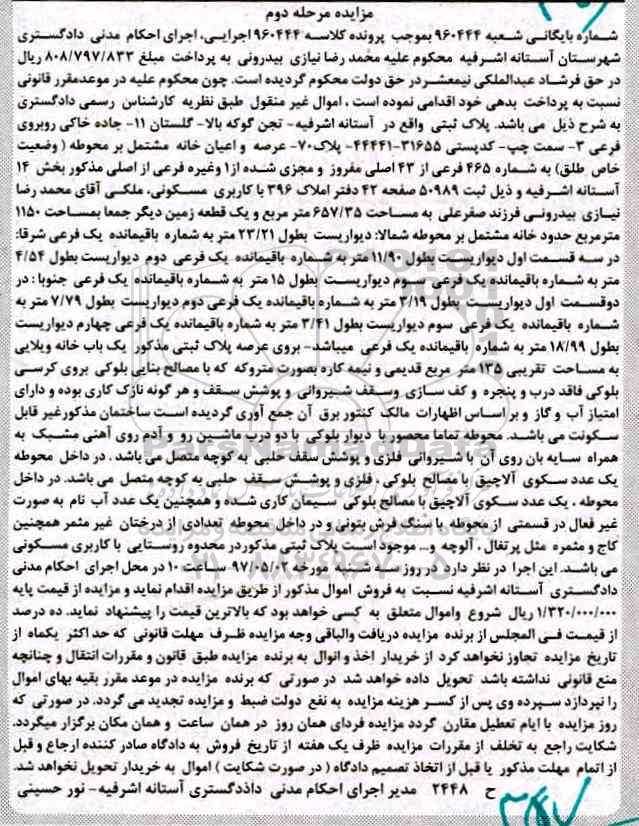 مزایده مرحله دوم
شماره بایگانی شعبه ۹۶۰۴۴۴ بموجب پرونده کلاسه ۹۶۰۴۴۴ اجرایی، اجرای احکام مدنی دادگستری
شهرستان آستانه اشرفیه محکوم علیه محمد رضا نیازی بیدرونی به پرداخت مبلغ ۸۰۸/۷۹۷/۸۳۳ ریال
در حق فرشاد عبدالملکی نیمعشردر حق دولت محکوم گردیده است. چون محکوم علیه در موعدمقرر قانونی
نسبت به پرداخت بدهی خود اقدامی نموده است ، اموال غیر منقول طبق نظریه کارشناس رسمی دادگستری
به شرح ذیل می باشد. پلاک ثبتی واقع در آستانه اشرفیه- تجن گوکه بالا- گلستان ۱۱- جاده خاکی روبروی
فرعی ۳- سمت چپ- کدپستی ۳۱۶۵۵-۴۴۴۴۱- پلاک۷۰- عرصه و اعیان خانه مشتمل بر محوطه ( وضعیت
خاص طلق) به شماره ۴۶۵ فرعی از ۴۳ اصلی مفروز و مجزی شده از۱ وغیره فرعی از اصلی مذکور بخش ۱۴
آستانه اشرفیه و ذیل ثبت ۵۰۹۸۹ صفحه ۴۲ دفتر املاک ۳۹۶ با کاربری مسکونی، ملکی آقای محمد رضا
نیازی بیدرونی فرزند صفرعلی به مساحت ۶۵۷/۳۵ متر مربع و یک قطعه زمین دیگر جمعا بمساحت ۱۱۵۰
مترمربع حدود خانه مشتمل بر محوطه شمالا: دیواریست بطول ۲۳/۲۱ متر به شماره باقیمانده یک فرعی شرقا:
در سه قسمت اول دیواریست بطول ۱۱/۹۰ متر به شماره باقیمانده یک فرعی دوم دیواریست بطول ۴/۵۴
متر به شماره باقیمانده یک فرعی سوم دیواریست بطول ۱۵ متر به شماره باقیمانده یک فرعی جنوبا : در
دوقسمت اول دیواریست بطول ۳/۱۹ متر به شماره باقیمانده یک فرعی دوم دیواریست بطول ۷/۷۹ متر به
شماره باقیمانده یک فرعی سوم دیواریست بطول ۳/۴۱ متر به شماره باقیمانده یک فرعی چهارم دیواریست
بطول ۱۸/۹۹ متر به شماره باقیمانده یک فرعی میباشد- بروی عرصه پلاک ثبتی مذکور یک باب خانه ویلایی
به مساحت تقریبی ۱۳۵ متر مربع قدیمی و نیمه کاره بصورت متروکه که با مصالح بنایی بلوکی بروی کرسی
بلوکی فاقد درب و پنجره و کف سازی وسقف شیروانی و پوشش سقف و هر گونه نازک کاری بوده و دارای
امتیاز آب و گاز و بر اساس اظهارات مالک کنتور برق آن جمع آوری گردیده است ساختمان مذکورغیر قابل
سکونت می باشد. محوطه تماما محصور با دیوار بلوکی با دو درب ماشین رو و آدم روی آهنی مشبک به
همراه سایه بان روی آن با شیروانی فلزی و پوشش سقف حلبی به کوچه متصل می باشد . در داخل محوطه
یک عدد سکوی آلاچیق با مصالح بلوکی ، فلزی و پوشش سقف حلبی به کوچه متصل می باشد. در داخل
محوطه ، یک عدد سکوی آلاچیق با مصالح بلوکی سیمان کاری شده و همچنین یک عدد آب نام به صورت
غیر فعال در قسمتی از محوطه با سنگ فرش بتونی و در داخل محوطه تعدادی از درختان غیر مثمر همچنین
کاج و مثمره مثل پرتقال ، آلوچه و... موجود است پلاک ثبتی مذکوردر محدوه روستایی با کاربری مسکونی
می باشد. این اجرا در نظر دارد در روز سه شنبه مورخه ۹۷/۰۵/۰۲ ساعت ۱۰ در محل اجرای احکام مدنی
دادگستری آستانه اشرفیه نسبت به فروش اموال مذکور از طریق مزایده اقدام نماید و مزایده از قیمت پایه
۱/۳۲۰/۰۰۰/۰۰۰ ریال شروع واموال متعلق به کسی خواهد بود که بالاترین قیمت را پیشنهاد نماید. ده درصد
از قیمت فی المجلس از برنده مزایده دریافت والباقی وجه مزایده ظرف مهلت قانونی که حد اکثر یکماه از
تاریخ مزایده تجاوز نخواهد کرد از خریدار اخذ و انوال به برنده مزایده طبق قانون و مقررات انتقال و چنانچه
منع قانونی نداشته باشد تحویل داده خواهد شد در صورتی که برنده مزایده در موعد مقرر بقیه بهای اموال
را نپردازد سپرده وی پس از کسر هزینه مزایده به نفع دولت ضبط و مزایده تجدید می گردد. در صورتی که
روز مزایده با ایام تعطیل مقارن گردد مزایده فردای همان روز در همان ساعت و همان مکان برگزار میگردد.
شکایت راجع به تخلف از مقررات مزایده ظرف یک هفته از تاریخ فروش به دادگاه صادر کننده ارجاع و قبل
از اتمام مهلت مذکور یا قبل از اتخاذ تصمیم دادگاه ( در صورت شکایت ) اموال به خریدار تحویل نخواهد شد.
ح ۲۴۴۸ مدیر اجرای احکام مدنی دادگستری آستانه اشرفیه- نور حسینی